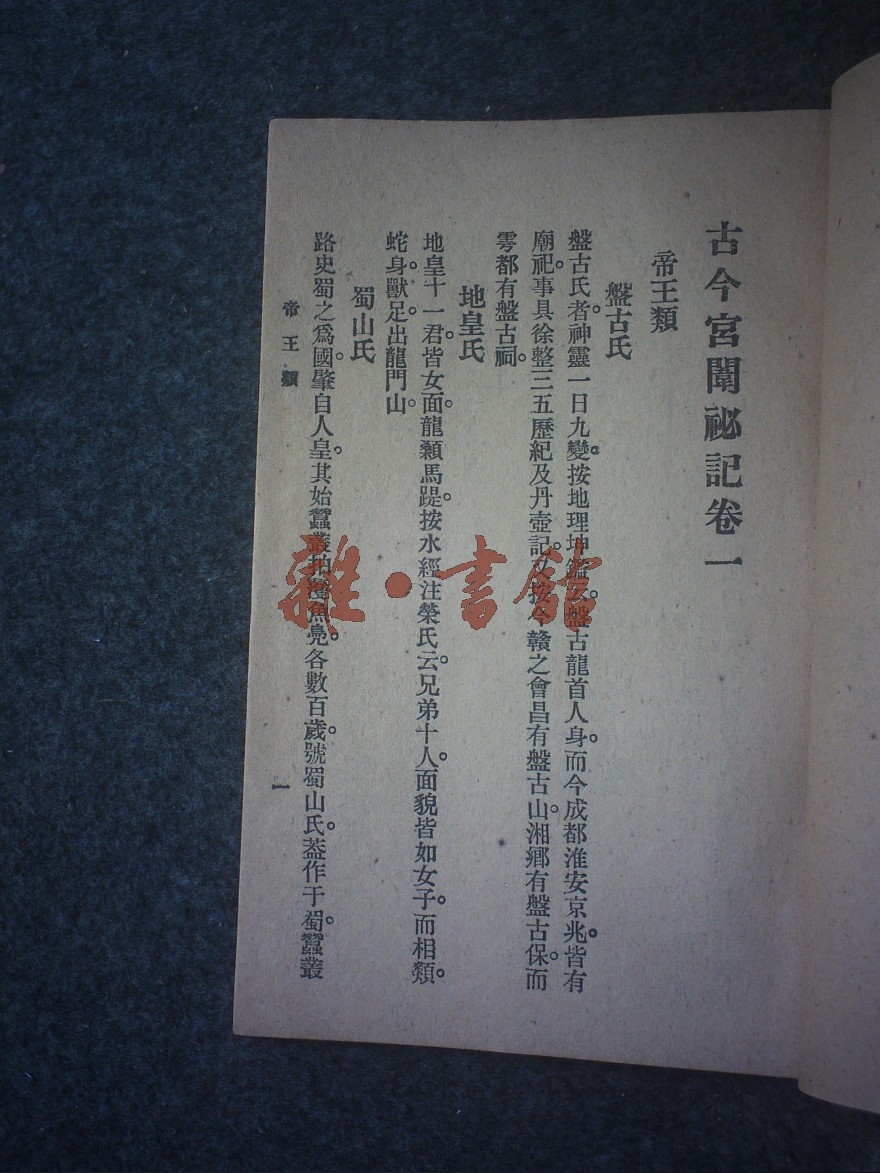 古今宮闈祕記卷一
帝王類
盤古氏
盤古氏者。神靈一日九變。按地理坤鑑云。盤古龍首人身。而今成都淮安京兆。皆有
廟祀。事具徐整三五歷紀及丹壺記。又按今贛之會昌有盤古山。湘鄉有盤古保。而
雩都有盤古祠。
地皇氏
地皇十一君。皆女面。龍顙馬踶。按水經注榮氏云。兄弟十人。面貌皆如女子。而相類。
蛇身。獸足。出龍門山。
蜀山氏
路史蜀之爲國。肇自人皇。其始蠶叢拍濩魚鳧。各數百歲。號蜀山氏。葢作于蜀。蠶叢
帝王類
一
雜·書館